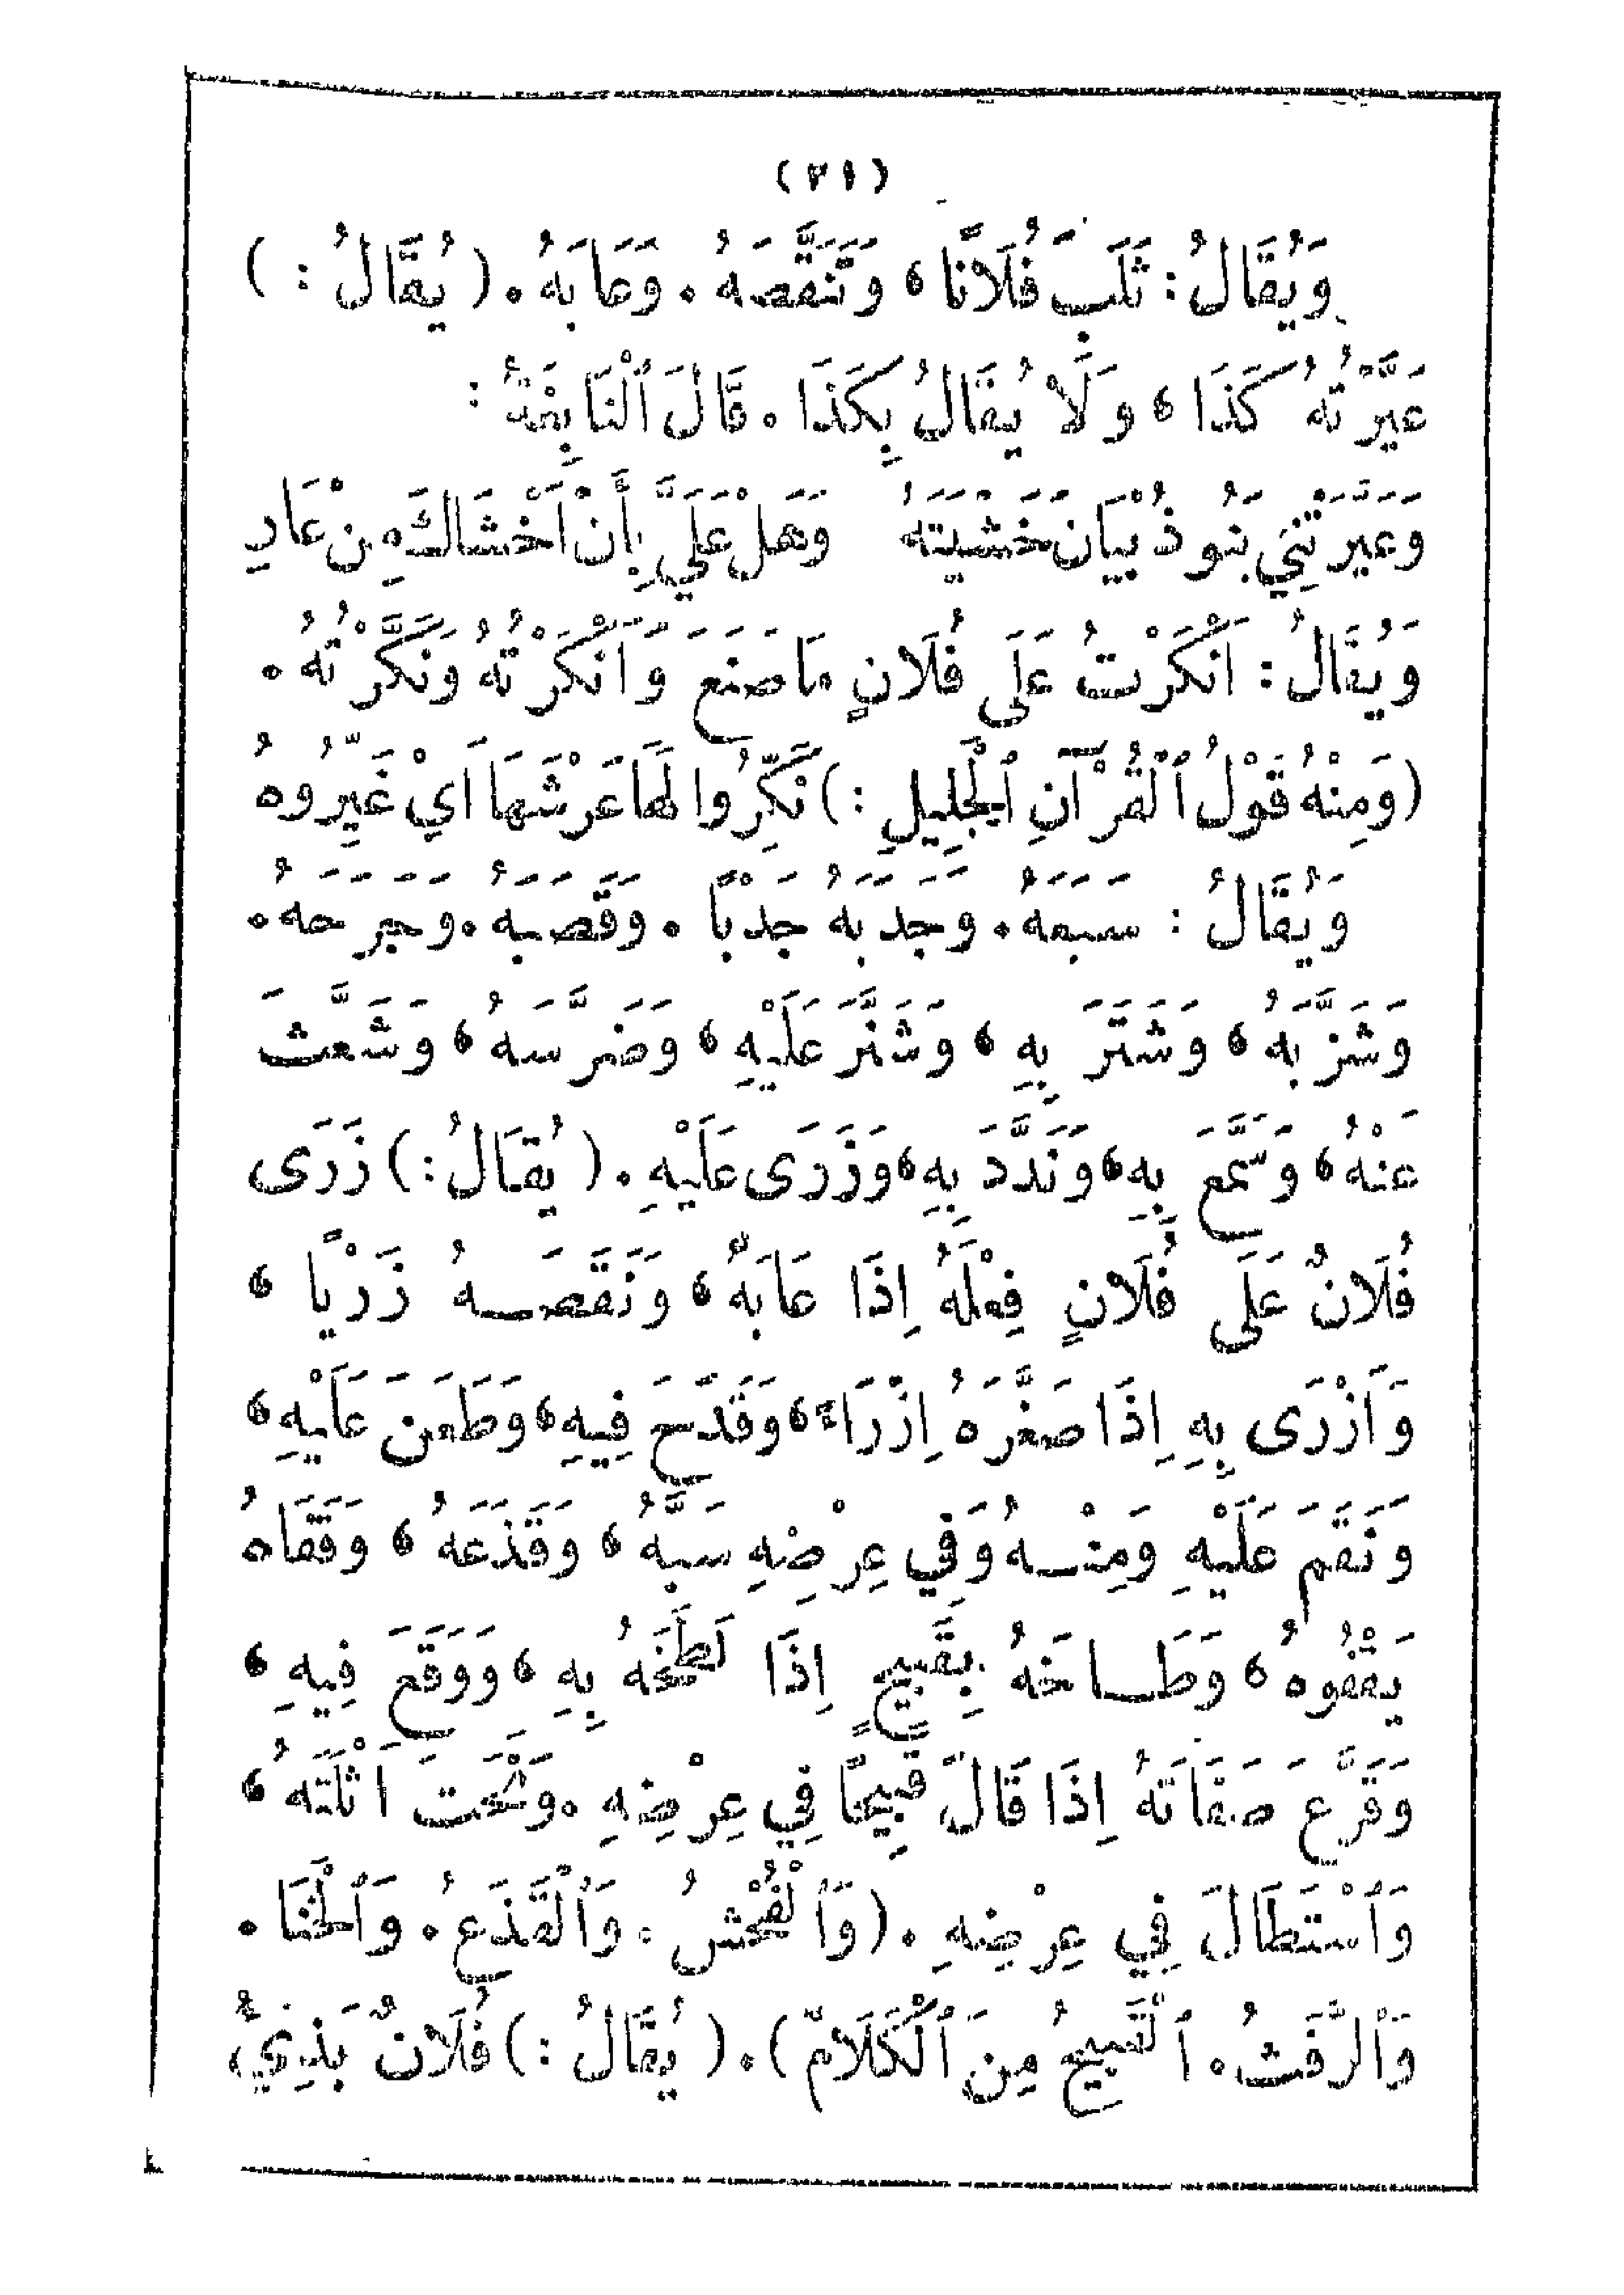 (٢١)
وَيُقَالُ: ثَلَبَ فُلَانًا، وَتَنَقَّصَهُ. وَعَابَهُ. (يُقَالُ:)
عَيَّرْتُهُ كَذَا، وَلَا يُقَالُ بِكَذَا. قَالَ ٱلنَّابِغَةُ:
وَعَيَّرَتْنِي بَنُو ذُبْيَانَ خَشْيَتَهُ وَهَلْ عَلَيَّ بِأَنْ أَخْشَاكَ مِنْ عَارِ
وَيُقَالُ: أَنْكَرْتُ عَلَى فُلَانٍ مَا صَنَعَ وَأَنْكَرْتُهُ وَنَكَّرْتُهُ.
(وَمِنْهُ قَوْلُ ٱلْقُرْآنِ ٱلْجَلِيلِ:) نَكِّرُوا لَهَا عَرْشَهَا أَيْ غَيِّرُوهُ
وَيُقَالُ: سَبَعَهُ. وَجَدَبَهُ جَدْبًا. وَقَصَبَهُ. وَجَرَحَهُ.
وَشَزَّبَهُ، وَشَتَّرَ بِهِ، وَشَنَّرَ عَلَيْهِ، وَضَرَّسَهُ، وَشَعَّثَ
عَنْهُ، وَسَمَّعَ بِهِ، وَنَدَّدَ بِهِ، وَزَرَى عَلَيْهِ. (يُقَالُ:) زَرَى
فُلَانٌ عَلَى فُلَانٍ فِعْلَهُ إِذَا عَابَهُ، وَنَقَصَهُ زَرْيًا،
وَأَزْرَى بِهِ إِذَا صَغَّرَهُ إِزْرَاءً، وَقَدَحَ فِيهِ، وَطَعَنَ عَلَيْهِ،
وَنَقَمَ عَلَيْهِ وَمِنْهُ وَفِي عِرْضِهِ سَبَّهُ، وَقَذَعَهُ، وَقَفَاهُ
يَقْفُوهُ، وَطَاخَهُ بِقَبِيحٍ إِذَا لَطَخَهُ بِهِ، وَوَقَعَ فِيهِ،
وَقَرَّعَ صَفَاتَهُ إِذَا قَالَ قَبِيحًا فِي عِرْضِهِ. وَنَحَتَ أَثْلَتَهُ،
وَٱسْتَطَالَ فِي عِرْضِهِ. (وَٱلْفُحْشُ. وَٱلْقَذَعُ. وَٱلْخَنَا.
وَٱلرَّفَثُ. ٱلْقَبِيحُ مِنَ ٱلْكَلَامِ). (يُقَالُ:) فُلَانٌ بَذِيءُ